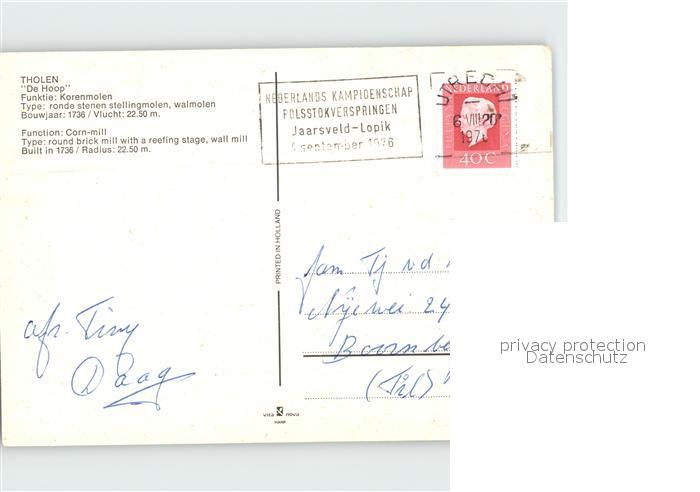 THOLEN
"De Hoop"
Funktie: Korenmolen
Type: ronde stenen stellingmolen, walmolen
Bouwjaar: 1736 / Vlucht: 22.50 m.
Function: Corn-mill
Type: round brick mill with a reefing stage, wall mill
Built in 1736 / Radius: 22.50 m.
NEDERLANDS KAMPIOENSCHAP
POLSSTOKVERSPRINGEN
Jaarsveld-Lopik
4 september 1976
UTRECHT
NEDERLAND
6 VIII 20
197
40 C
PRINTED IN HOLLAND
fam Tj vd
Nijewei 24
afz. Tiny
(Fr)
privacy protection
Datenschutz
vita nova